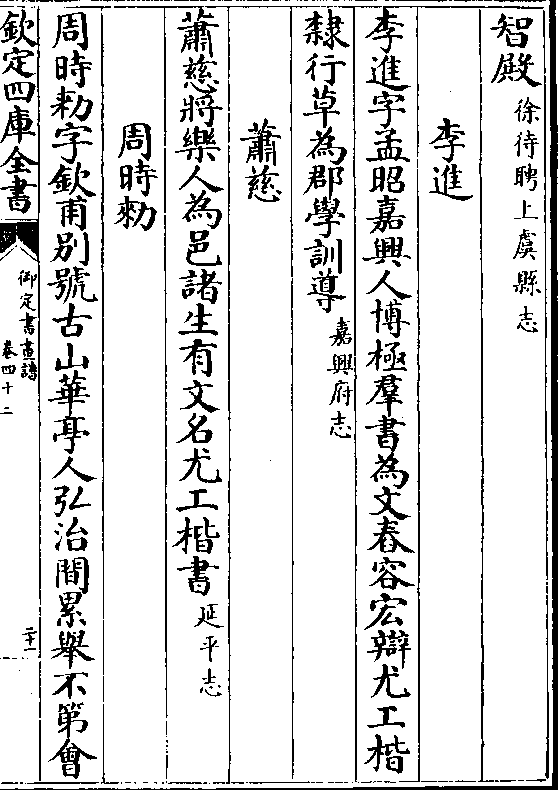 智殿徐待聘上虞縣志
李進
李進字孟昭嘉興人博極羣書為文舂容宏辯尤工楷
隸行草為郡學訓導嘉興府志
蕭慈
蕭慈將樂人為邑諸生有文名尤工楷書延平志
周時勑
周時勑字欽甫别號古山華亭人弘治間累舉不第會
欽定四庫全書
御定書畫譜
卷四十二
二十一